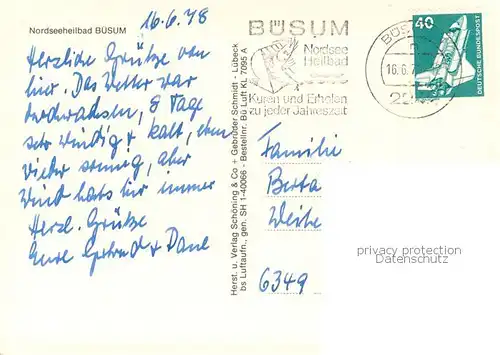 Nordseeheilbad BÜSUM
16.6.78
Herzliche Grüße von
hier. Das Wetter war
durchwachsen, 8 Tage
sehr windig + kalt, eben
wieder sonnig, aber
Wind hats hier immer
Herzl. Grüße
Eure Gertrud + Paul
Herst. u. Verlag Schöning & Co + Gebrüder Schmidt - Lübeck
bs Luftaufn., gen. SH 1-40066 - Bestellnr. Bü Luft KL 7095 A
BÜSUM
Nordsee
Heilbad
Kuren und Erholen
zu jeder Jahreszeit
BÜSUM
16.6.7
40
DEUTSCHE BUNDESPOST
Familie
Berta
6349
privacy protection
Datenschutz